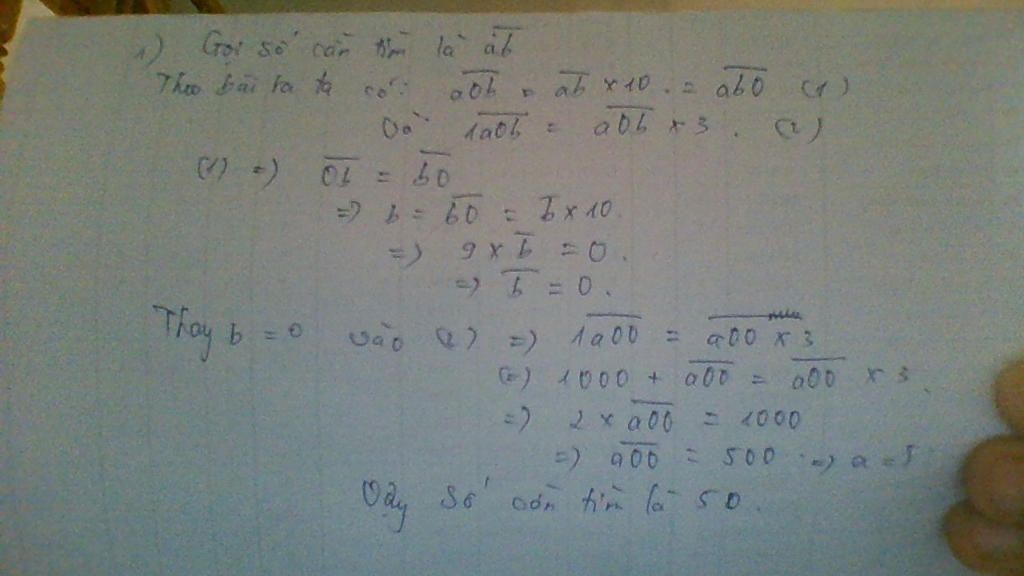 1) Gọi số cần tìm là ab
Theo bài ra ta có: a0b = ab × 10 . = ab0 (1)
Và 1a0b = a0b × 3 . (2)
(1) => 0b = b0
=> b = b0 = b × 10.
=> 9 × b = 0.
=> b = 0.
Thay b = 0 vào (2) => 1a00 = a00 × 3
(=) 1000 + a00 = a00 × 3
=> 2 × a00 = 1000
=> a00 = 500 => a = 5
Vậy số cần tìm là 50.